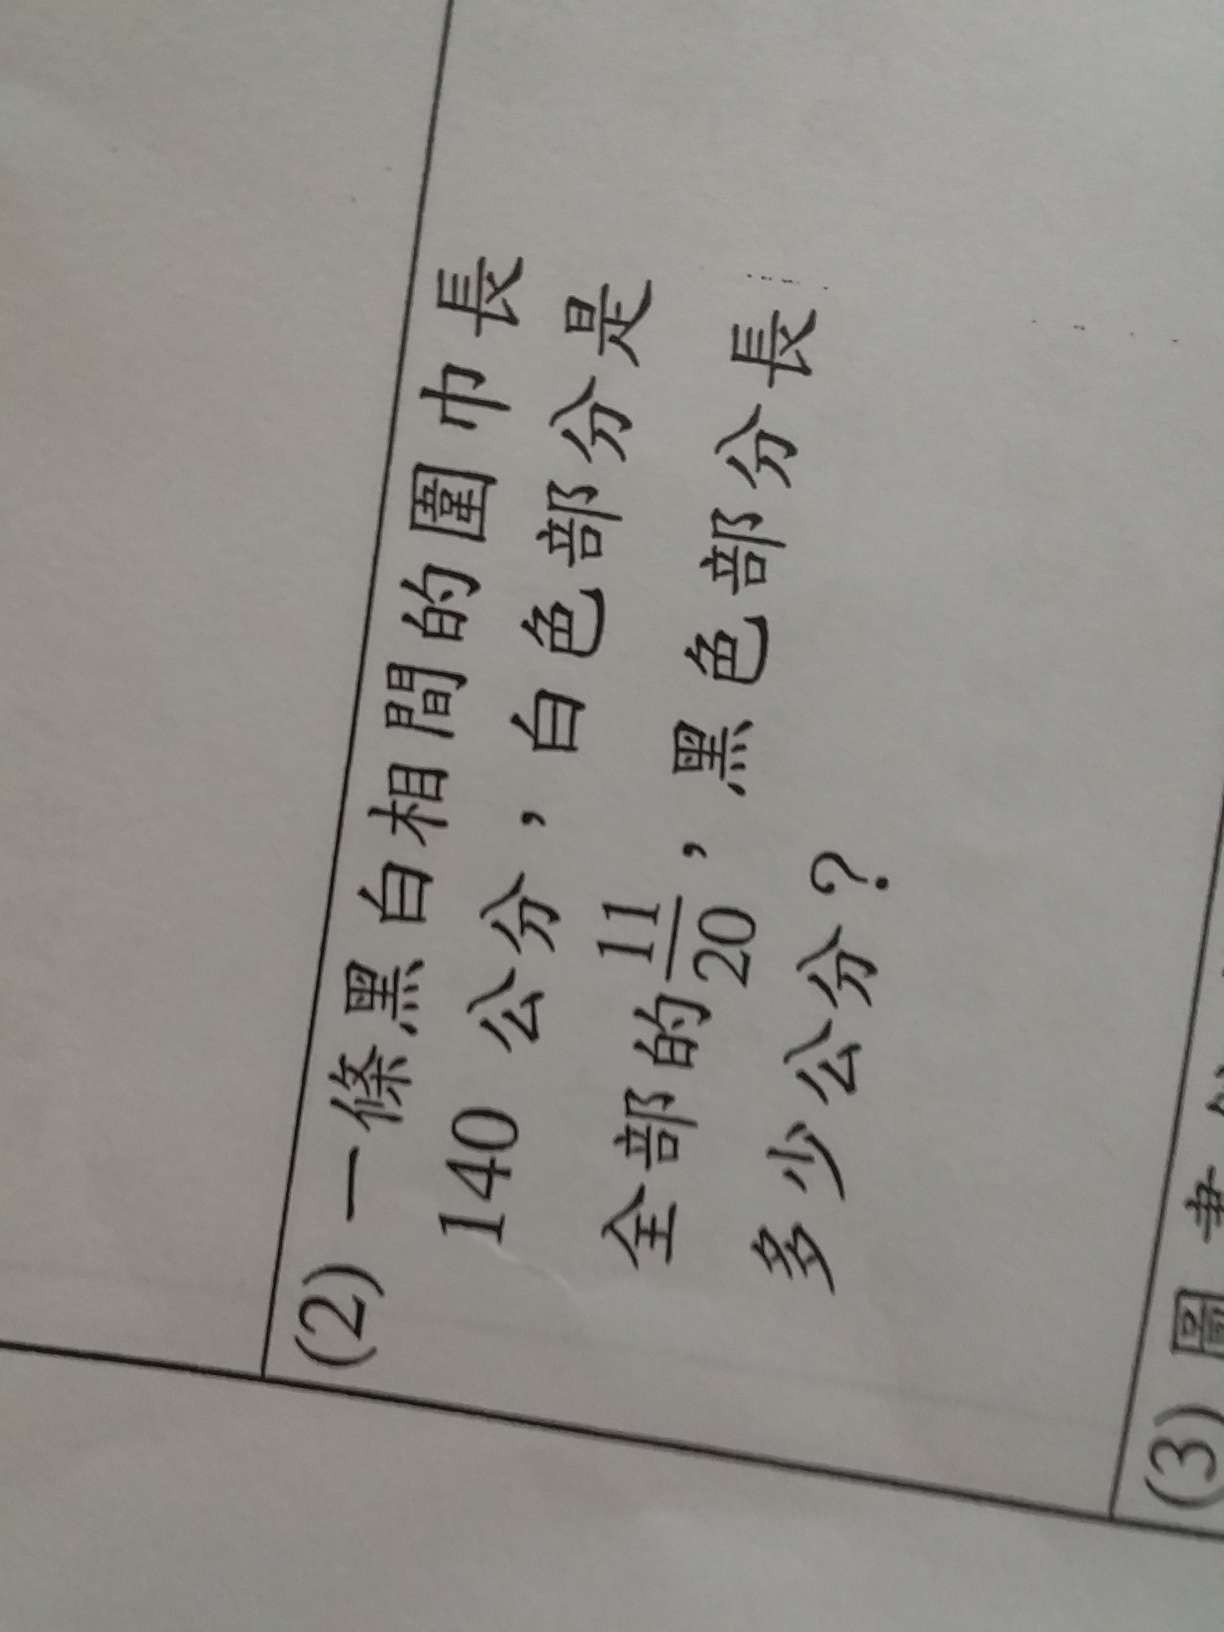 (2) 一條黑白相間的圍巾長
140 公分，白色部分是
全部的 11/20，黑色部分長
多少公分？
(3) 圖書